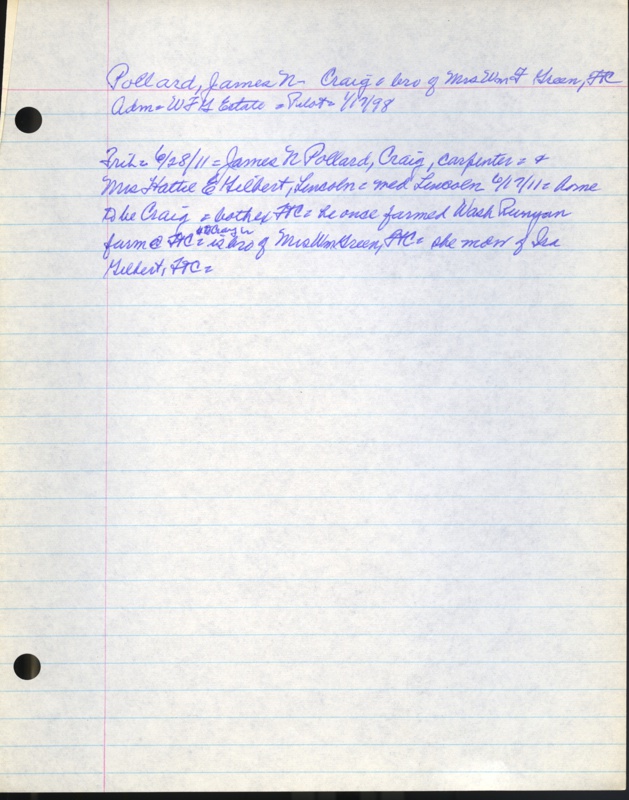 Pollard, James N - Craig = bro of Mrs Wm F Green, FtC
Adm = WFG Estate = Pilot = 1/17/98
Trib = 6/28/11 = James N Pollard, Craig, carpenter = +
Mrs Hattie E Gilbert, Lincoln = med Lincoln 6/17/11 = home
to be Craig = both FtC = he once farmed Wash Runyan
farm @ FtC = is bro of Mrs Wm Green, FtC = she mother of Ira
Gilbert, FtC =